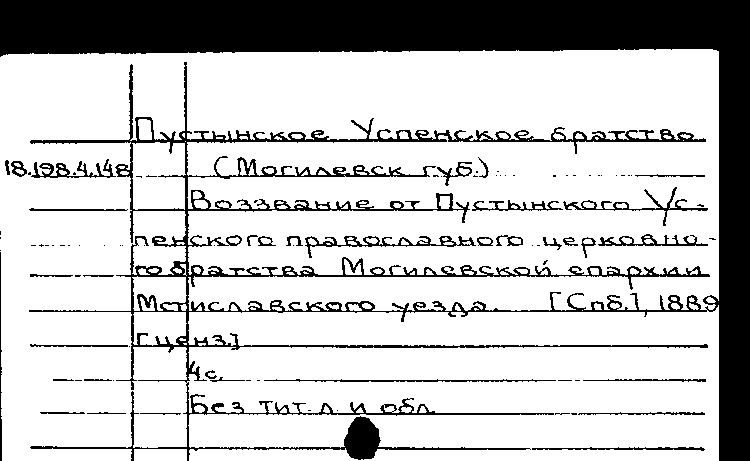 Пустынское Успенское братство
18.198.4.148 (Могилевск губ.)
Воззвание от Пустынского Ус-
пенского православного церковно-
го братства Могилевской епархии
Мстиславского уезда. [Спб.], 1889
[ценз.]
4с.
Без тит. л и обл.